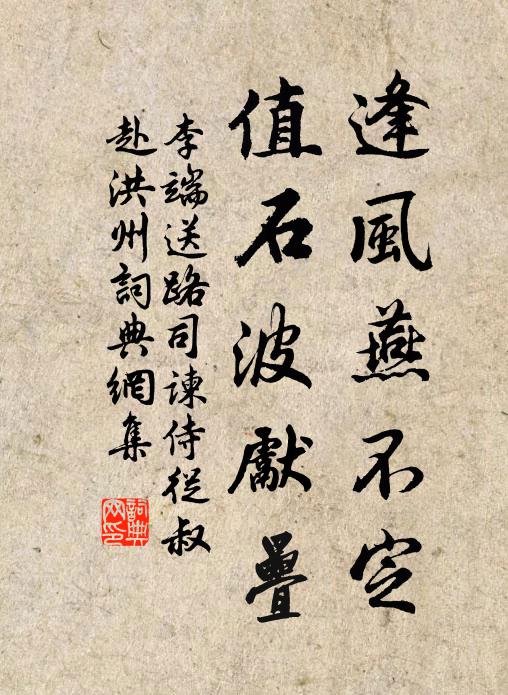 逢風燕不定
值石波獻疊
李端送路司諫侍從叔
赴洪州詞典網集
詞典
网印